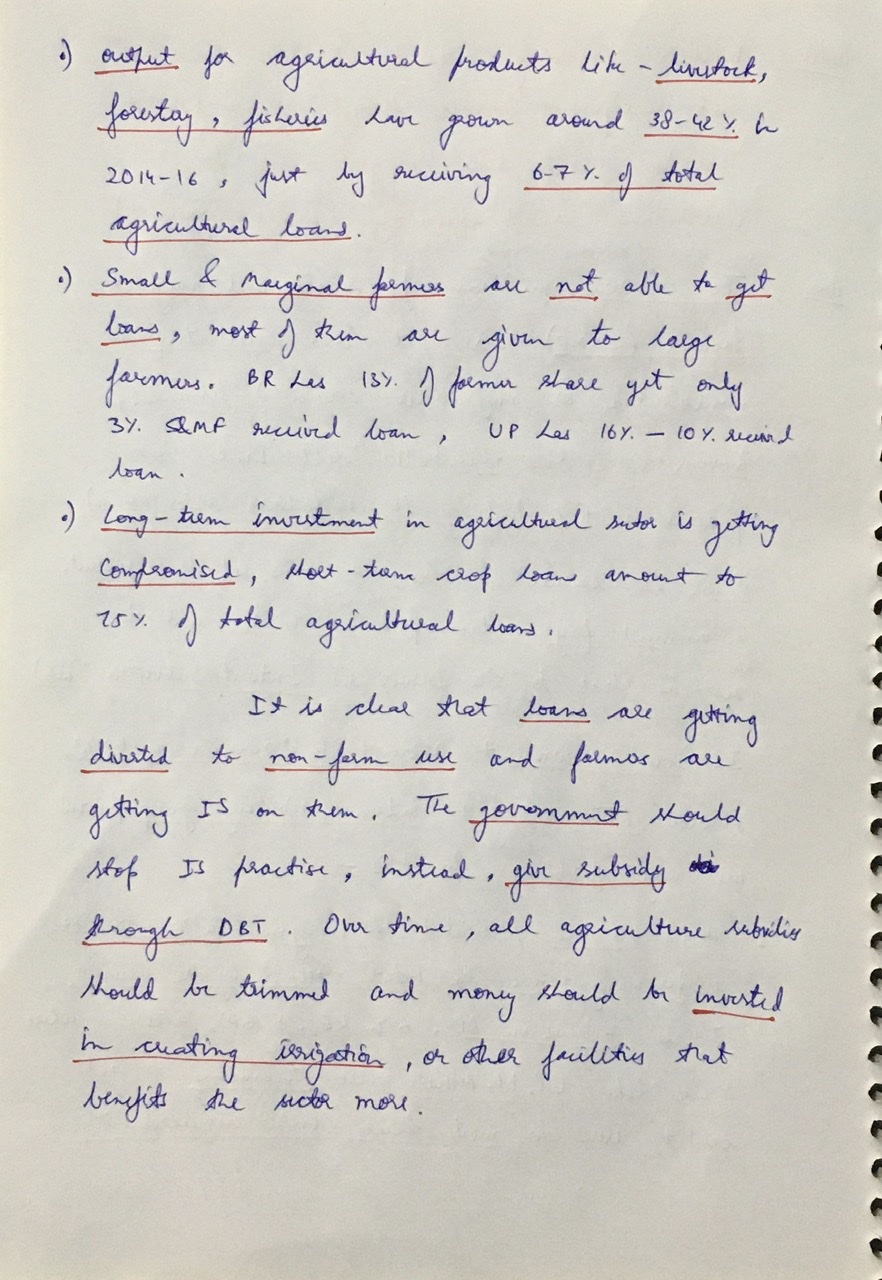 •) output for agricultural products like - livestock,
forestry, fisheries have grown around 38-42% in
2014-16, just by receiving 6-7% of total
agricultural loans.
•) Small & Marginal farmers are not able to get
loans, most of them are given to large
farmers. BR has 13% of farmer share yet only
3% S&MF received loan, UP has 16% - 10% received
loan.
•) Long-term investment in agricultural sector is getting
compromised, short-term crop loans amount to
75% of total agricultural loans.
It is clear that loans are getting
diverted to non-farm use and farmers are
getting IS on them. The government should
stop IS practise, instead, give subsidy
through DBT. Over time, all agriculture subsidies
should be trimmed and money should be invested
in creating irrigation, or other facilities that
benefits the sector more.